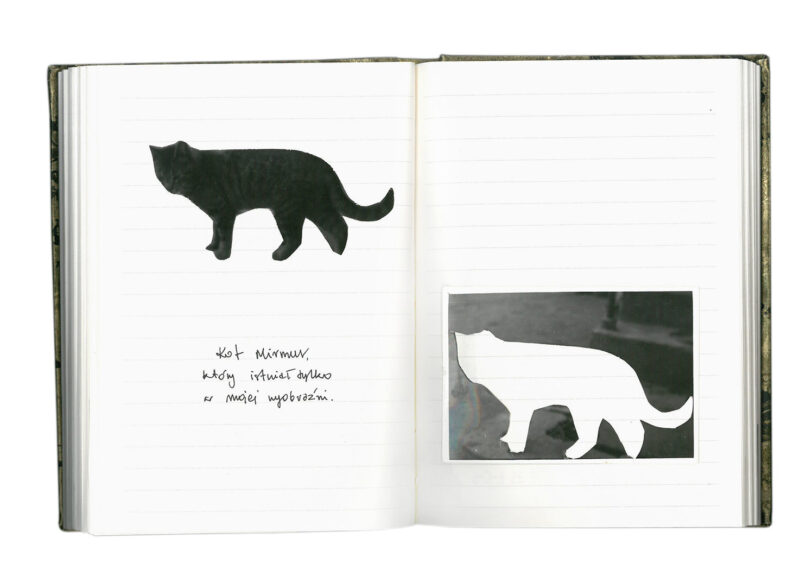 Kot Mirmur,
który istniał tylko
w mojej wyobraźni.